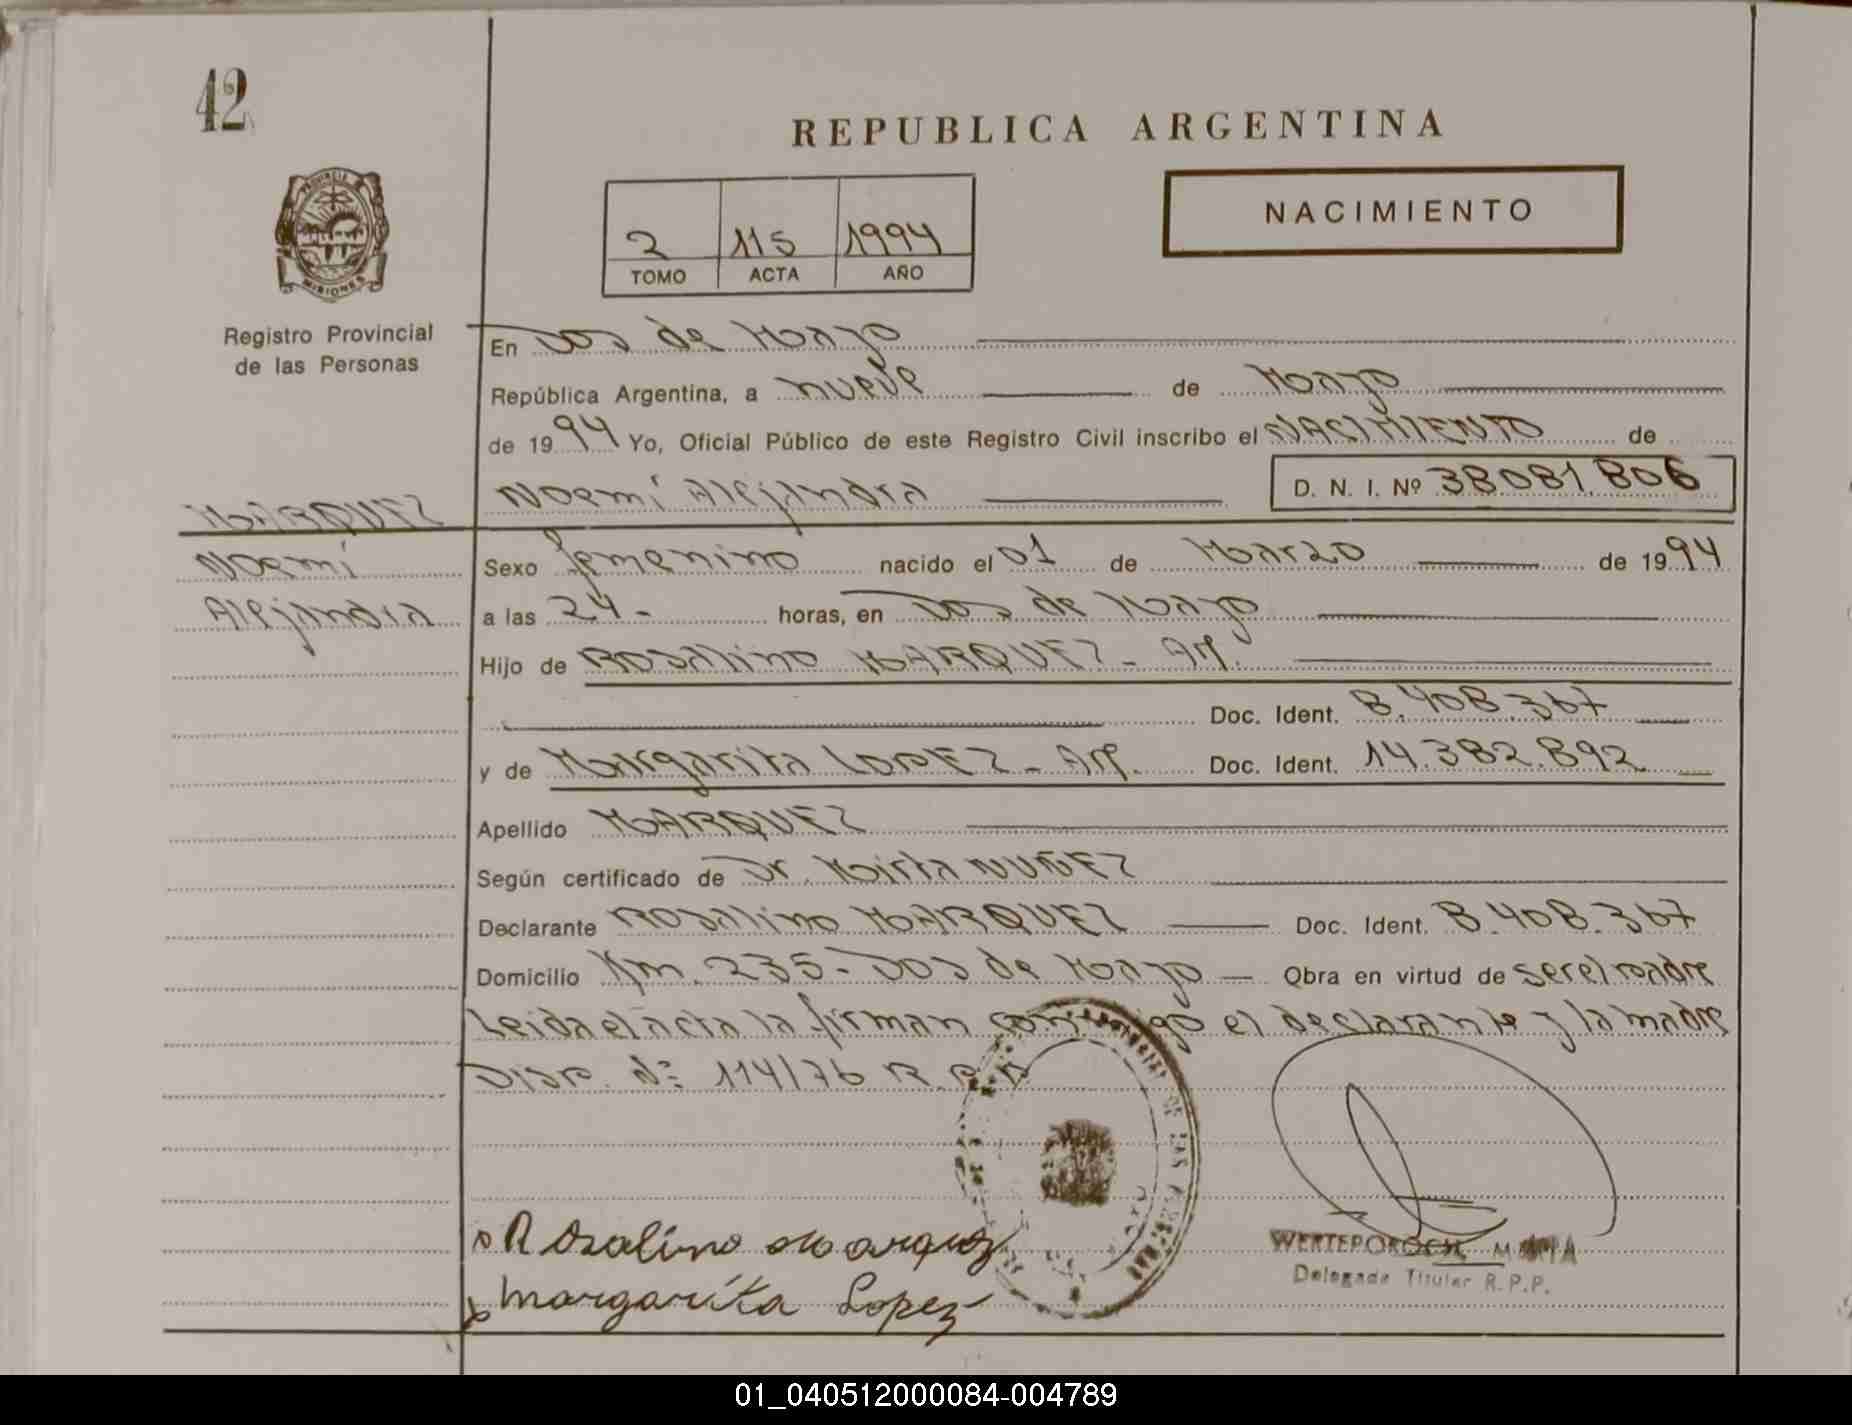 42
REPUBLICA ARGENTINA
PROVINCIA
MISIONES
2 115 1994
TOMO ACTA AÑO
NACIMIENTO
Registro Provincial
de las Personas
En Dos de Mayo
República Argentina, a nueve de Mayo
de 1994 Yo, Oficial Público de este Registro Civil inscribo el NACIMIENTO de
MARQUEZ Noemí Alejandra D. N. I. Nº 38081.806
Noemí Sexo femenino nacido el 01 de Marzo de 1994
Alejandra a las 24- horas, en Dos de Mayo
Hijo de Rosalino MARQUEZ - Arg.
Doc. Ident. 8.408.367
y de Margarita LOPEZ - Arg. Doc. Ident. 14.382.892
Apellido MARQUEZ
Según certificado de Dr. Mirta NUÑEZ
Declarante Rosalino MARQUEZ Doc. Ident. 8.408.367
Domicilio Km. 235- Dos de Mayo Obra en virtud de ser el padre
Leida el acta la firman conmigo el declarante y la madre
Disp. Nº 114/76 R.P.P.
Rosalino Marquez
Margarita Lopez
DE LAS
Delegada Titular R.P.P.
01_040512000084-004789